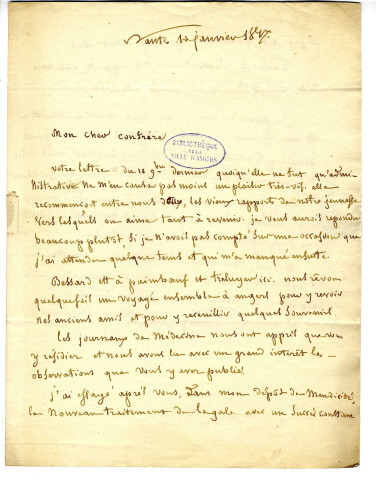 Nantes 12 janvier
Mon cher confrère
BIBLIOTHÈQUE
DE LA
VILLE D'ANGERS
votre lettre du 16 9bre dernier quoiqu'elle ne fut qu'admi
nistrative ne m'en causa pas moins un plaisir très-vif. elle
recommençoit entre nous deux, les vieux rapports de notre jeunesse
vers lesquels on aime tant à revenir. je vous aurois repondu
beaucoup plutot, si je n'avois pas compté sur une occasion que
j'ai attendu quelque tems et qui m'a manqué ensuite.
Bessard est à paimboeuf et treluyer ici. nous revons
quelquefois un voyage ensemble à angers pour y revoir
nos anciens amis et pour y recueillir quelques souvenirs.
les journaux de Médecine nous ont appris que vous
y résidiez et nous avons lu avec un grand intérêt les
observations que vous y avez publié.
j'ai essayé après vous, dans mon depôt de Mendicité,
le nouveau traitement de la gale avec un succès constant